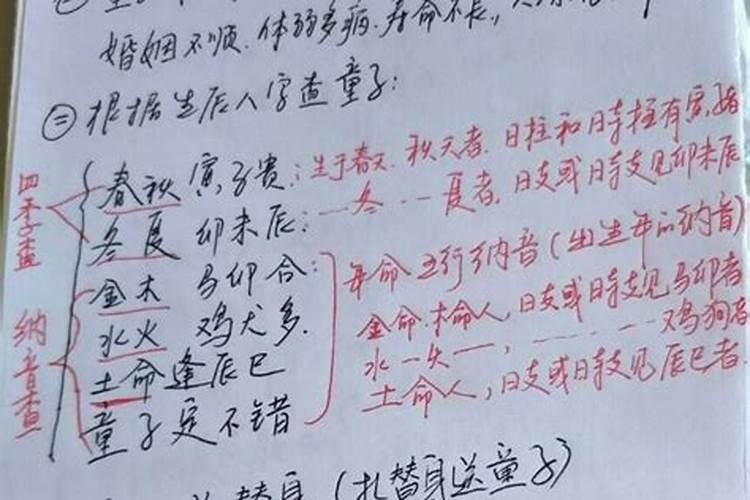 婚姻不顺.体弱多病.寿命不长,
㊂根据生辰八字查童子:
四季查
春秋寅子贵:生于春天.秋天者.日柱和时柱有寅.子者
冬夏卯未辰:……冬……夏者.日支或日时支见卯未辰
年命五行纳音(出生年的纳音)
纳音查
金木马卯合:金命.木命人,日支或日时支见马卯者
水火鸡犬多.水一火一,………鸡狗者
土命逢辰巳土命人,日支或日时支见辰巳者
童子定不错
替身(扎替身送童子)